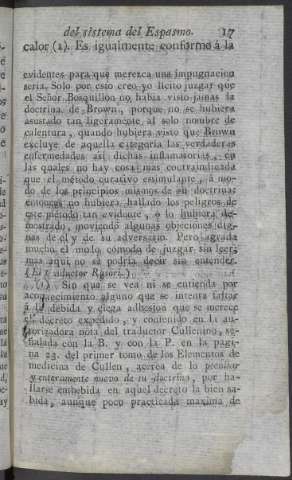 del sistema del Espasmo. 17
calor (1). Es igualmente conforme á la
evidentes para que merezca una impugnacion
seria. Solo por esto creo yo lícito juzgar que
el Señor Bosquillon no habia visto jamas la
doctrina de Brown, porque no se hubiera
asustado tan ligeramente al solo nombre de
calentura, quando hubiera visto que Brown
excluye de aquella categoría las verdaderas
enfermedades así dichas inflamatorias, en
las quales no hay cosa mas contraindicada
que el método curativo estimulante, á mo-
do de los principios mismos de su doctrina:
entonces no hubiera hallado los peligros de
este método tan evidente, ó lo hubiera de-
mostrado, moviendo algunas objeciones dig-
nas de él y de su adversario. Pero agrada
mucho el modo cómodo de juzgar sin leer;
mas aquí no se podria decir sin entender.
(El traductor Rasori.)
(1) Sin que se vea ni se entienda por
acontecimiento alguno que se intenta faltar
á la debida y ciega adhesion que se merece
el decreto expedido, y contenido en la au-
torizadora nota del traductor Culleniano, se-
ñalada con la B. y con la P. en la pági-
na 23. del primer tomo de los Elementos de
medicina de Cullen, acerca de lo peculiar
y enteramente nuevo de su doctrina, por ha-
llarse embebida en aquel decreto la bien sa-
bida, aunque poco practicada maxima de